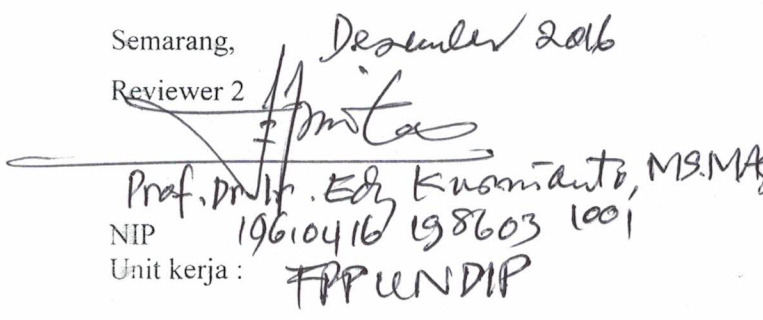 Semarang, Desember 2016
Reviewer 2
Prof. Dr. Ir. Edy Kurnianto, MS.MAg
NIP 19610416 198603 1001
Unit kerja : FPP UNDIP